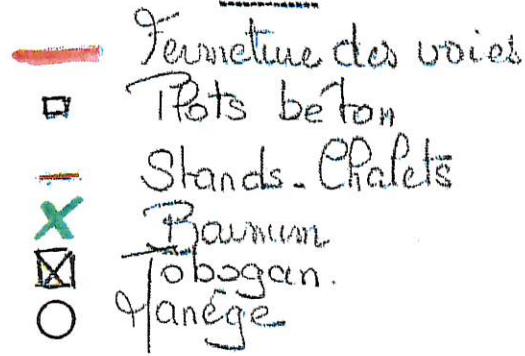 Fermeture des voies
Plots béton
Stands - Chalets
Barnum
Tobogan.
Manége